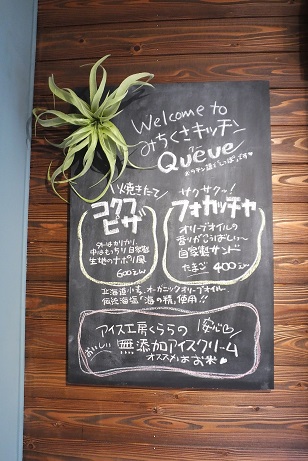 Welcome to
みちくさキッチン
クー
Queue
※ラテン語で"しっぽ"です♥
\焼きたて/
コクフ
ピザ
外はカリカリ、
中はもっちり自家製
生地のナポリ風
600えん
サクサクッ!
フォカッチャ
オリーブオイルの
香りがこうばしい〜
自家製サンド
たまご 400えん
北海道小麦、オーガニックオリーブオイル、
伝統海塩「海の精」使用!!
アイス工房くららの
安心
おいしい 無添加アイスクリーム
オススメはお米♥